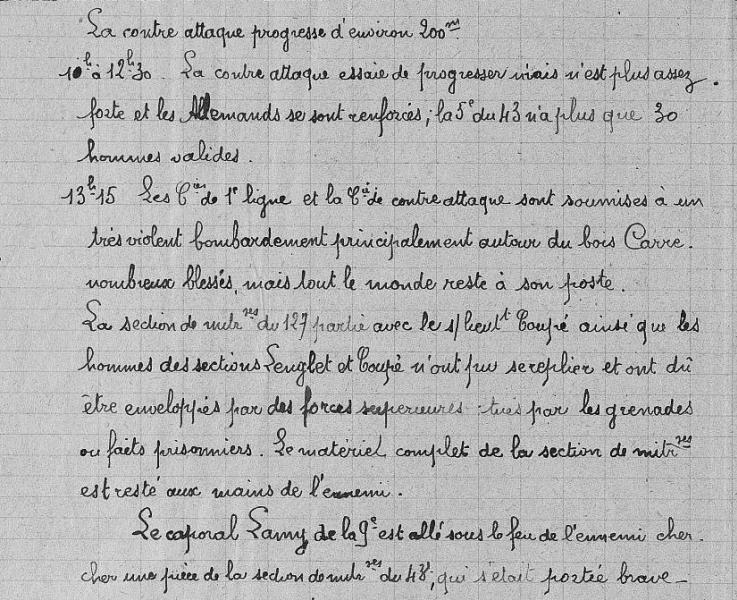 La contre attaque progresse d'environ 200m
10h à 12h30. La contre attaque essaie de progresser mais n'est plus assez
forte et les Allemands se sont renforcés; la 5e du 43 n'a plus que 30
hommes valides.
13h15 Les Cies de 1e ligne et la Cie de contre attaque sont soumises à un
très violent bombardement principalement autour du bois Carré.
nombreux blessés, mais tout le monde reste à son poste.
La section de mitres du 127 partie avec le s/lieutt Coupé ainsi que les
hommes des sections Lenglet et Coupé n'ont pu se replier et ont dû
être enveloppés par des forces supérieures tués par les grenades
ou faits prisonniers. Le matériel complet de la section de mitres
est resté aux mains de l'ennemi.
Le caporal Lamy de la 9e est allé sous le feu de l'ennemi cher-
cher une pièce de la section de mitres du 43e, qui s'était portée brave-